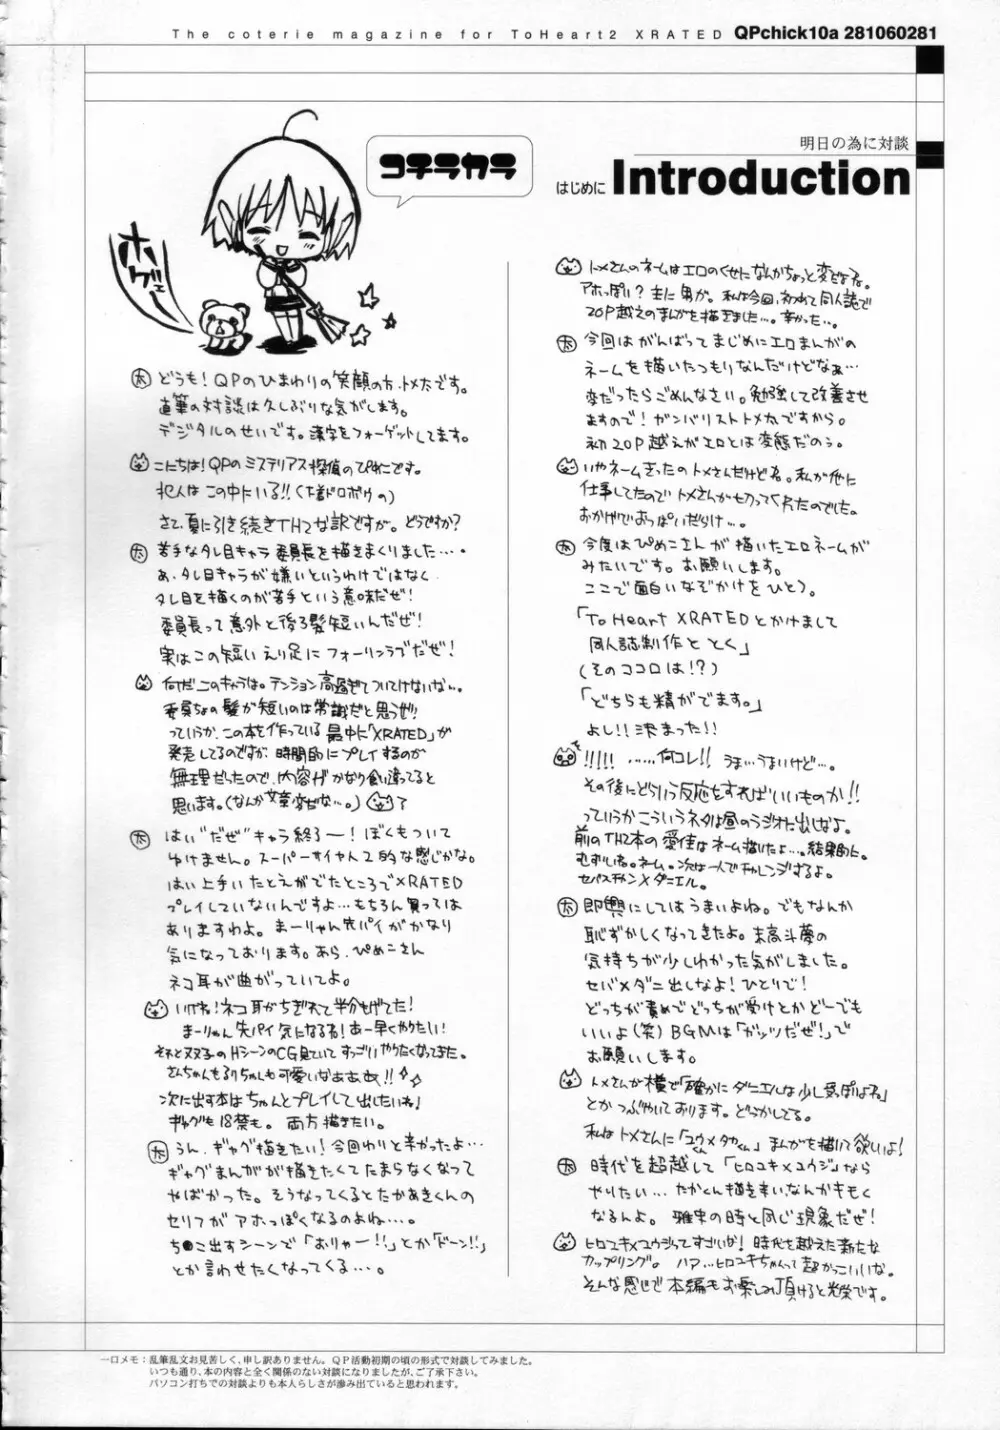 The coterie magazine for ToHeart2 XRATED QPchick10a 281060281
明日の為に対談
はじめに Introduction
コチラカラ
ホゲェ
太 どうも！QPのひまわりの笑顔の方、トメ太です。
直筆の対談は久しぶりな気がします。
デジタルのせいです。漢字をフォーゲットしてます。
こにちは！QPのミステリアス探偵のぴめこです。
犯人はこの中にいる!!（下着ドロボウの）
さて、夏に引き続きTH2な訳ですが。どうですか？
太 苦手なタレ目キャラ委員長を描きまくりました…。
あ、タレ目キャラが嫌いというわけではなく
タレ目を描くのが苦手という意味だぜ！
委員長って意外と後ろ髪短いんだぜ！
実はこの短いえり足にフォーリンラブだぜ！
何だこのキャラは。テンション高過ぎてついてけないな…。
委員ちょの髪が短いのは常識だと思うぜ!!
っていうか、この本を作っている最中に「XRATED」が
発売してるのですが、時間的にプレイするのが
無理だったので、内容がかなり食い違ってると
思います。（なんか文章変だな…。）
太 はい“だぜ”キャラ終了ー！ぼくもついて
ゆけません。スーパーサイヤ人2的な感じかな。
はい上手いたとえがでたところでXRATED
プレイしていないんですよ…もちろん買っては
ありますわよ。まーりゃん先パイがかなり
気になっております。あら、ぴめこさん
ネコ耳が曲がっていてよ。
いけね！ネコ耳がちぎれて半分もげてた！
まーりゃん先パイ気になるね！あー早くやりたい！
それと双子のHシーンのCG見ていてすっごいやりたくなってきた。
さんちゃんもるりちゃんも可愛いなぁぁぁぁ!!
次に出す本はちゃんとプレイして出したいね！
ギャグも18禁も。両方描きたい。
太 うん、ギャグ描きたい！今回わりと辛かったよ…
ギャグまんがが描きたくてたまらなくなって
やばかった。そうなってくるとたかあきくんの
セリフがアホっぽくなるのよね…。
ち●こ出すシーンで「おりゃー!!」とか「ドーン!!」
とか言わせたくなってくる…。
トメさんのネームはエロのくせになんかちょっと変だよね。
アホっぽい？主に男が。私は今回、初めて同人誌で
20P越えのまんがを描きました…。辛かった…。
太 今回はがんばってまじめにエロまんがの
ネームを描いたつもりなんだけどなぁ…
変だったらごめんなさい。勉強して改善させ
ますので！ガンバリストトメ太ですから。
初20P越えがエロとは変態だのぅ。
いやネームきったのトメさんだけどね。私が他に
仕事してたのでトメさんが切ってくれたのでした。
おかげでおっぱいだらけ…。
太 今度はぴめこさんが描いたエロネームが
みたいです。お願いします。
ここで面白いなぞかけをひとつ。
「To Heart XRATEDとかけまして
同人誌制作ととく」
（そのココロは!?）
「どちらも精がでます。」
よし!!決まった!!
!!!!! ……何コレ!! うま…うまいけど…。
その後にどういう反応をすればいいものか!!
っていうかこういうネタは昼のラジオに出しなよ。
前のTH2本の愛佳はネーム描けたよ…。結果的に。
むずいね。ネーム。次は一人でチャレンジするよ。
セバスチャン×ダニエル。
太 即興にしてはうまいよね。でもなんか
恥ずかしくなってきたよ。末高斗夢の
気持ちが少しわかった気がしました。
セバ×ダニ出しなよ！ひとりで！
どっちが責めでどっちが受けとかどーでも
いいよ（笑）BGMは「ガッツだぜ！」で
お願いします。
トメさんが横で「確かにダニエルは少し受っぽいよね」
とかつぶやいております。どうかしてる。
私はトメさんに「ユウくん×タカくん」まんがを描いて欲しいよ！
太 時代を超越して「ヒロユキ×ユウジ」なら
やりたい…たかくん描き辛い、なんかキモく
なるんよ。雅史の時と同じ現象だぜ！
ヒロユキ×ユウジってすごいな！時代を越えた新たな
カップリング。ハァ…ヒロユキちゃんって超かっこいいな。
そんな感じで本編もお楽しみ頂けると光栄です。
一口メモ：乱筆乱文お見苦しく、申し訳ありません。QP活動初期の頃の形式で対談してみました。
いつも通り、本の内容と全く関係のない対談になりましたが、ご了承下さい。
パソコン打ちでの対談よりも本人らしさが滲み出ていると思われます。